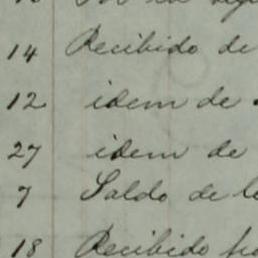 14 Recibido de
12 idem de
27 idem de
7 Saldo de
18 Recibido